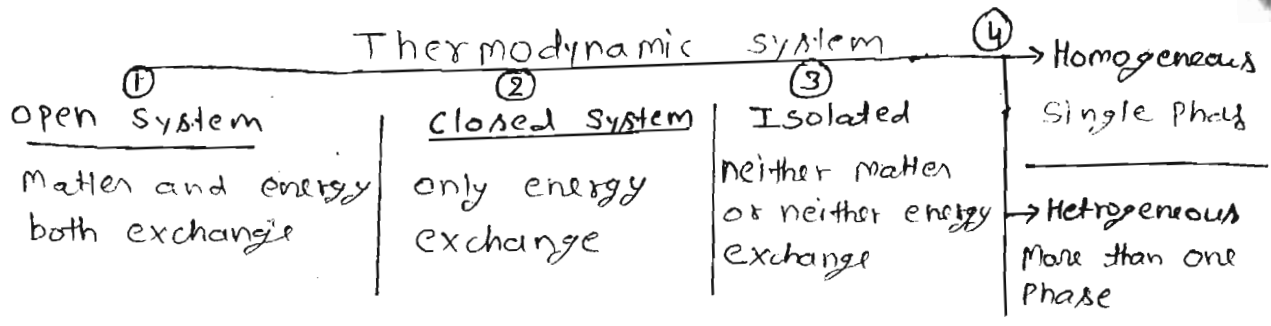 Thermodynamic system
①
open system
Matter and energy
both exchange
②
Closed system
only energy
exchange
③
Isolated
neither matter
or neither energy
exchange
④
→ Homogeneous
Single Phase
→ Hetrogeneous
More than one
Phase